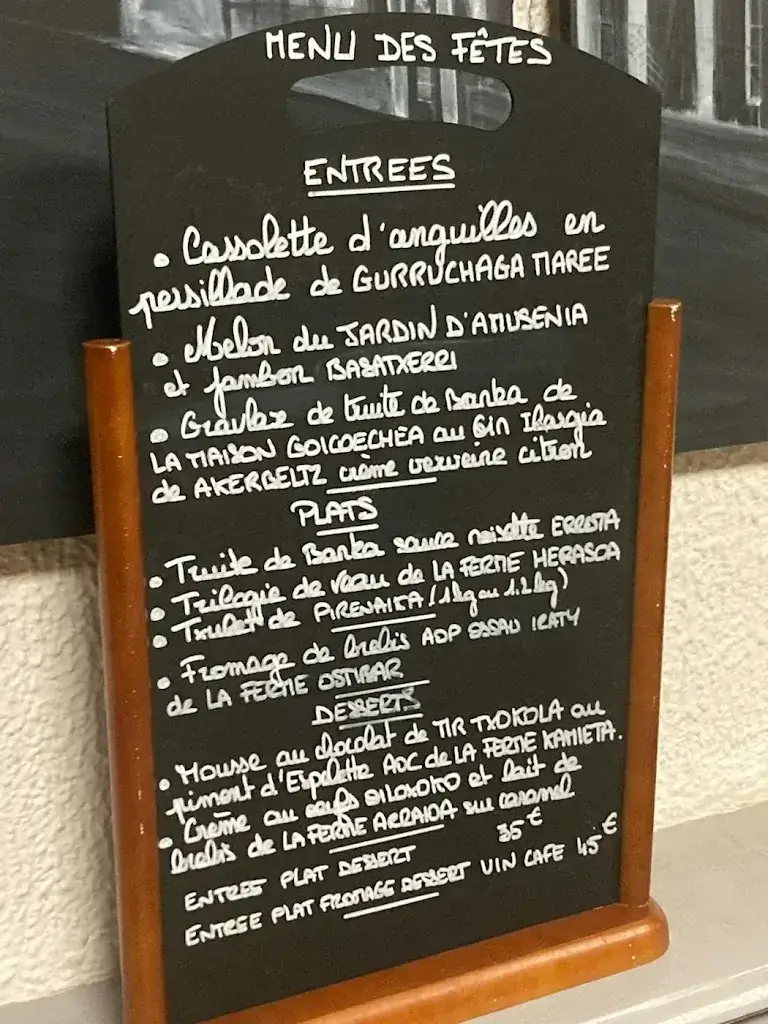 MENU DES FÊTES
ENTREES
• Cassolette d'anguilles en
persillade de GURRUCHAGA MAREE
• Melon du JARDIN D'AMUSENIA
et jambon BASATXERRI
• Gravlax de truite de Banka de
LA MAISON GOICOECHEA au Gin Ilargia
de AKERBELTZ crème verveine citron
PLATS
• Truite de Banka sauce noisette ERROTA
• Trilogie de veau de LA FERME HERASOA
• Txulett de PIRENAIKA (1kg ou 1.2kg)
• Fromage de brebis AOP OSSAU IRATY
de LA FERME OSTIBAR
DESSERTS
• Mousse au chocolat de TIR TXOKOLA au
piment d'Espelette AOC de LA FERME KAMIETA.
• Crème au oeufs OILOXOKO et lait de
brebis de LA FERME ARRAIOA sur caramel
ENTREE PLAT DESSERT 35€
ENTREE PLAT FROMAGE DESSERT VIN CAFE 45€